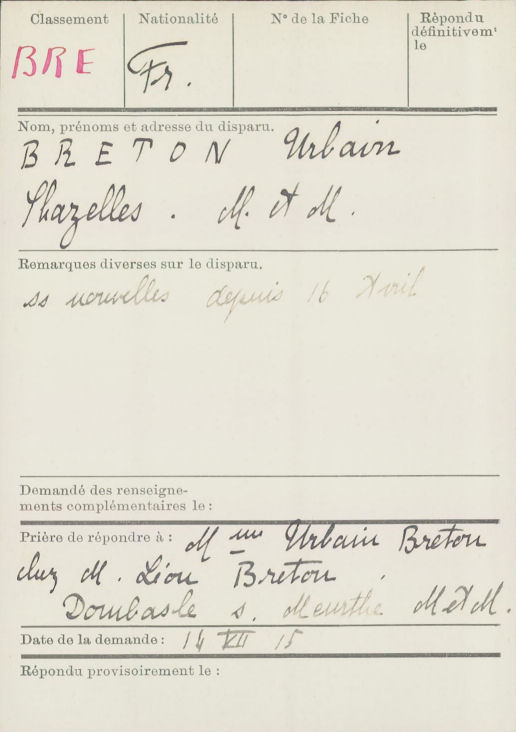 Classement Nationalité Nº de la Fiche Répondu définitivemt le
BRE Fr.
Nom, prénoms et adresse du disparu.
BRETON Urbain
Thazelles. M. et M.
Remarques diverses sur le disparu.
ss nouvelles depuis 16 Avril
Demandé des renseigne-
ments complémentaires le :
Prière de répondre à : Mme Urbain Breton
chez M. Léon Breton.
Dombasle s. Meurthe M et M.
Date de la demande : 14 VII 15
Répondu provisoirement le :